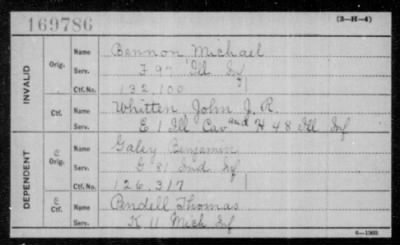 169786 (3-H-4)
INVALID
Orig. Name Bennon Michael
Serv. F 97 Ill Inf
Ctf. No. 132,100
Ctf. Name Whitten John J. R.
Serv. E 1 Ill Cav and H 48 Ill Inf
DEPENDENT
C Orig. Name Galey Benjamin
Serv. G 81 Ind Inf
Ctf. No. 126,317
C Ctf. Name Pendell Thomas
Serv. K 11 Mich Inf